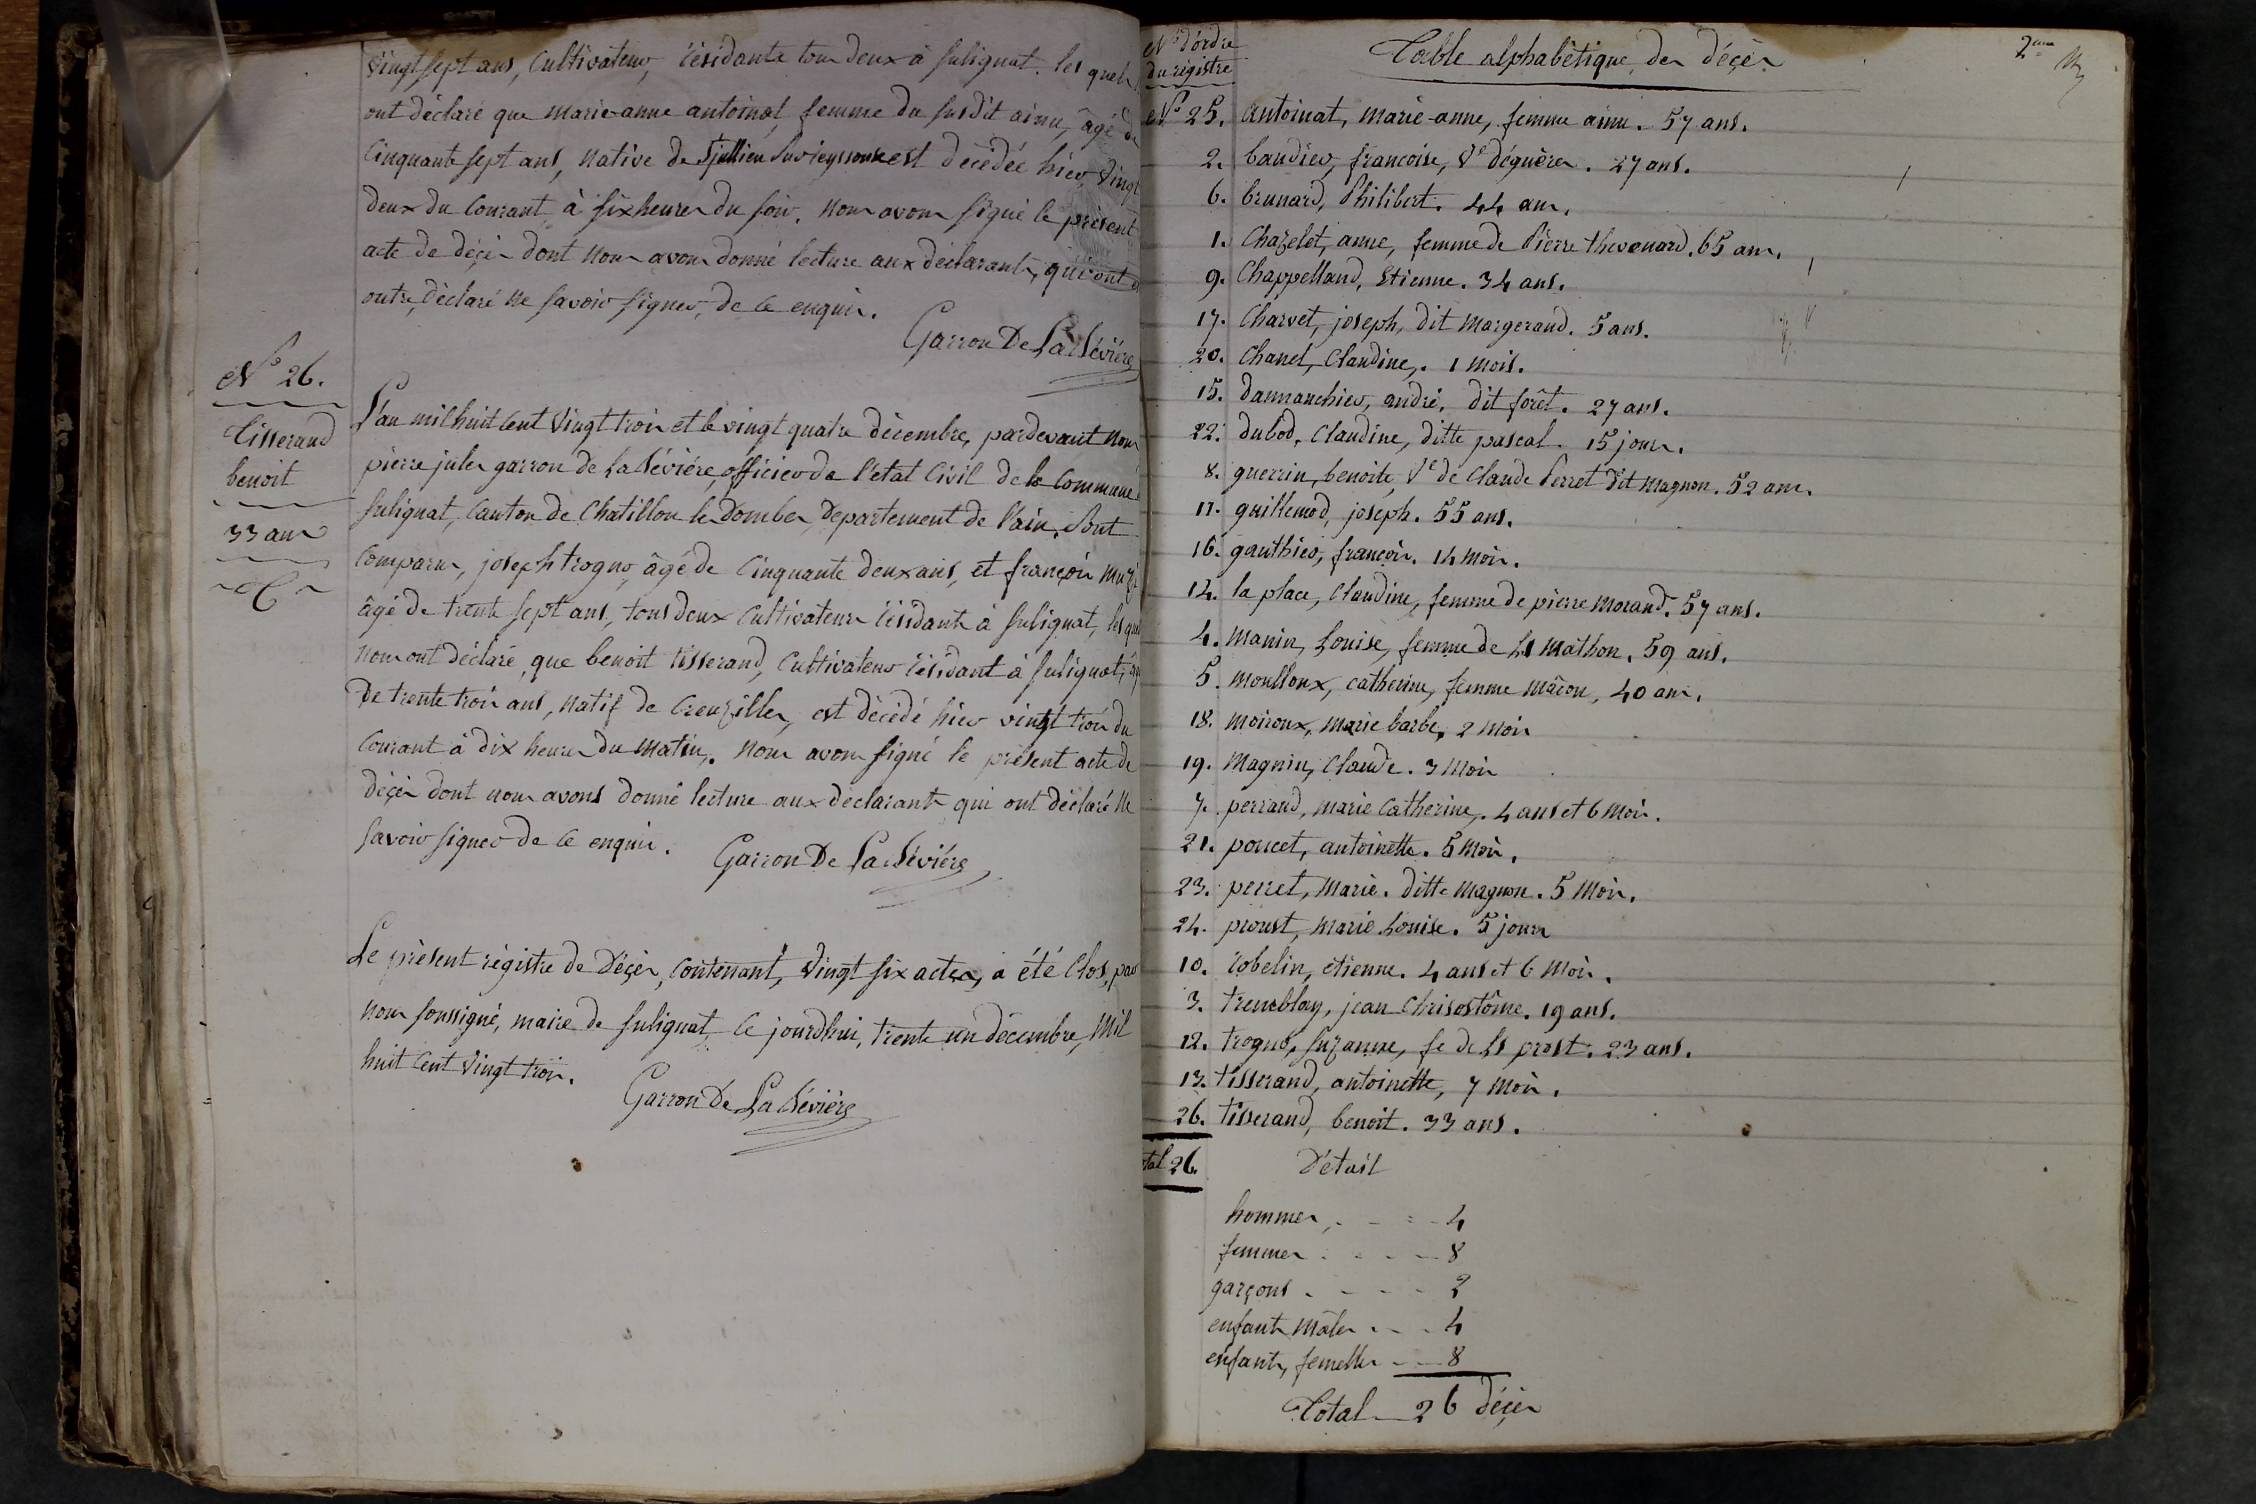 vingt sept ans, Cultivateurs, résidants tous deux à Sulignat. les quels
ont déclaré que marie-anne antoinat, femme du susdit aimu, âgé de
Cinquante sept ans, native de St jullien sur veyssouse est décédée hier, vingt
deux du Courant, à six heures du soir. Nous avons signé le présent
acte de décès dont nous avons donné lecture aux déclarants, qui ont
outre, Déclaré ne savoir signer, de ce enquis.
Garron De La Bévière
N° 26.
Tisserand
benoit
33 ans
L'an mil huit Cent vingt trois et le vingt quatre décembre, pardevant nous
pierre jules garron de la Bévière, officier de l'état Civil de la Commune
Sulignat, Canton de Chatillon les Dombes, Département de l'ain. Sont
Comparus, joseph trogno, âgé de Cinquante deux ans, et françois
âgé de trente sept ans, tous deux Cultivateurs résidants à Sulignat, les
nous ont déclaré, que benoit tisserand, Cultivateur résidant à Sulignat,
De trente trois ans, natif de Creuzilles, est décédé hier vingt trois du
Courant à dix heures du matin. Nous avons signé le présent acte de
décès dont nous avons donné lecture aux déclarants qui ont déclaré ne
savoir signer de ce enquis. Garron De La Bévière
Le présent régistre de Décès, Contenant, vingt six actes, a été Clos, par
nous soussigné, maire de Sulignat, ce jourdhui, trente un décembre, mil
huit Cent vingt trois.
Garron De La Bévière
N° d'ordre
du régistre
Table alphabètique des décès
2eme
N° 25. antoinat, marie-anne, femme aimu. 57 ans.
2. baudier, francoise, Ve déguères. 27 ans.
6. brunard, Philibert. 44 ans.
1. Chazelet, anne, femme de Pierre thevenard. 65 ans.
9. Chappelland, Etienne. 34 ans.
17. Charvet, joseph, dit margerand. 5 ans.
20. Chanel, Claudine,. 1 mois.
15. dannanchier, andré, dit forêt. 27 ans.
22. dubod, Claudine, ditte pascal. 15 jours.
8. guerrin, benoite, Ve de Claude Perret dit magnon. 52 ans.
11. guillemod, joseph. 55 ans.
16. gauthier, françois. 14 mois.
14. la place, Claudine, femme de pierre morand. 57 ans.
4. manin, Louise, femme de Ls mathon. 59 ans.
5. moulloux, catherine, femme mâcon, 40 ans.
18. moiroux, marie barbe, 2 mois
19. magnin, Claude. 3 mois
7. perrand, marie Catherine,. 4 ans et 6 mois.
21. poncet, antoinette. 5 mois.
23. perret, marie. ditte magnon. 5 mois.
24. proust, marie Louise. 5 jours
10. robelin, étienne. 4 ans et 6 mois.
3. tremblay, jean Chrisostôme. 19 ans.
12. trogno, Suzanne, fe de Ls prost. 23 ans.
13. tisserand, antoinette, 7 mois.
26. tisserand, benoit. 33 ans.
tal 26.
Détail
hommes, . - - - 4
femmes . - - - 8
garçons . - - - 2
enfants mâles - - - 4
enfants, femelles - - - 8
Total - 26 décès